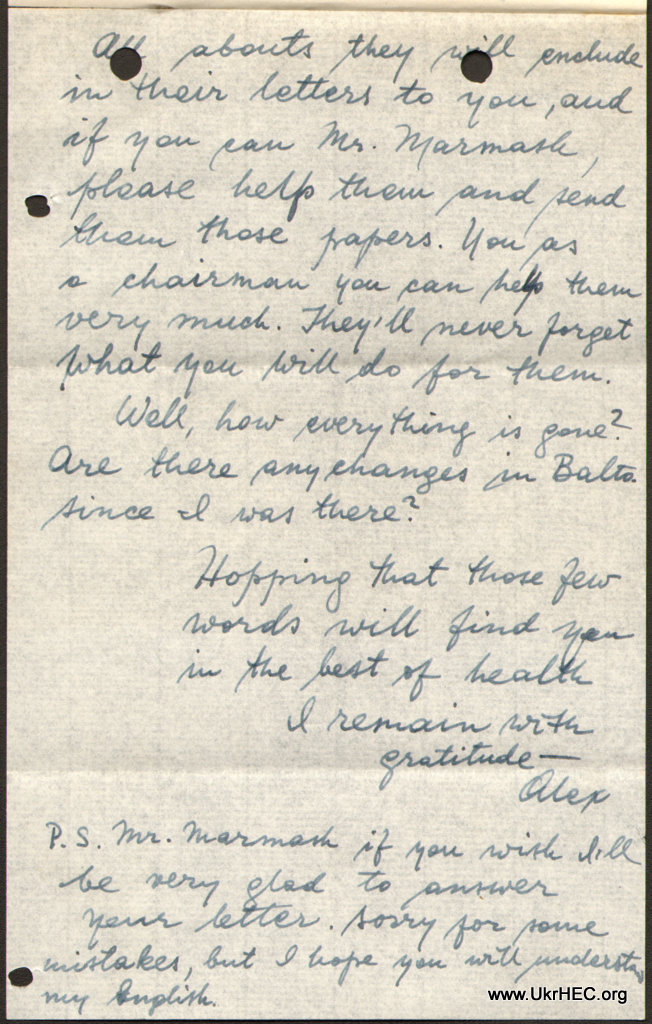 All abouts they will enclude
in their letters to you, and
if you can Mr. Marmash,
please help them and send
them those papers. You as
a chairman you can help them
very much. They'll never forget
what you will do for them.
Well, how everything is gone?
Are there any changes in Balto.
since I was there?
Hopping that those few
words will find you
in the best of health
I remain with
gratitude—
Alex
P.S. Mr. Marmash if you wish I'll
be very glad to answer
your letter. Sorry for some
mistakes, but I hope you will understand
my English.
www.UkrHEC.org